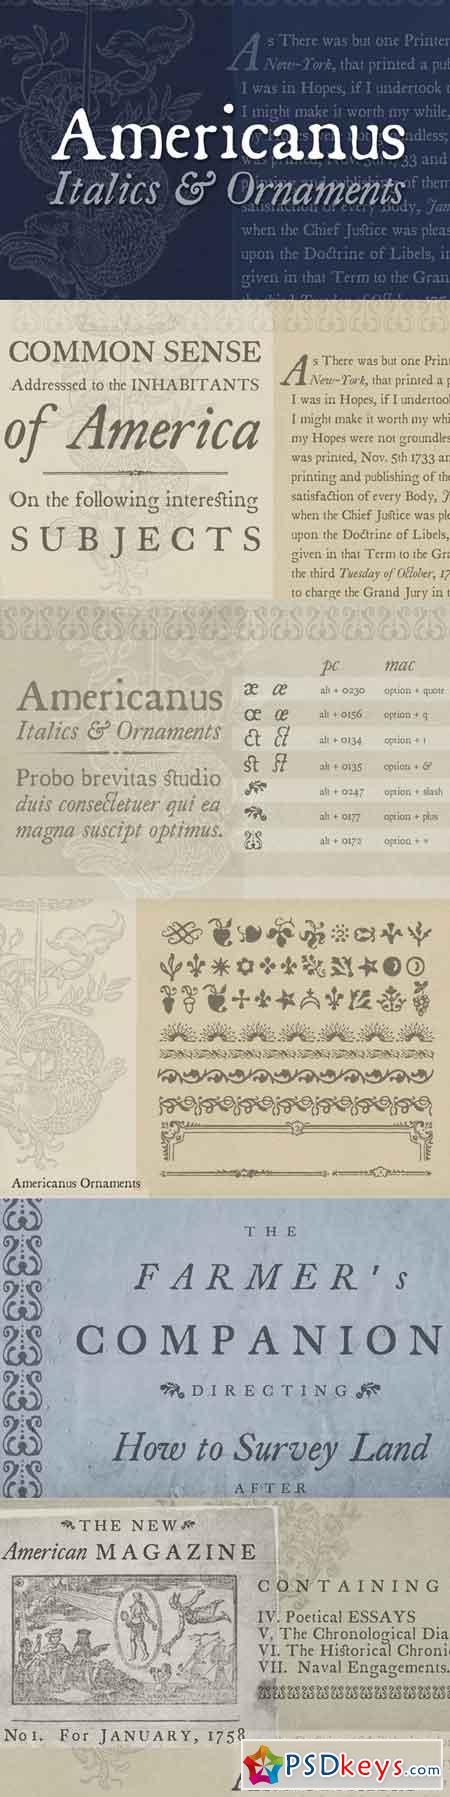 As There was but one Printer
New-York, that printed a pub
I was in Hopes, if I undertook t
I might make it worth my while,
Americanus
Italics & Ornaments
when the Chief Justice was pleas
upon the Doctrine of Libels, in
given in that Term to the Grand
COMMON SENSE
Addresssed to the INHABITANTS
of America
On the following interesting
SUBJECTS
As There was but one Print
New-York, that printed a p
I was in Hopes, if I undertoo
I might make it worth my whi
my Hopes were not groundles
was printed, Nov. 5th 1733 an
printing and publishing of the
satisfaction of every Body, J
when the Chief Justice was ple
upon the Doctrine of Libels, i
given in that Term to the Gra
the third Tuesday of October, 17
to charge the Grand Jury in t
Americanus
Italics & Ornaments
Probo brevitas studio
duis consectetuer qui ea
magna suscipit optimus.
pc mac
æ æ alt + 0230 option + quote
œ œ alt + 0156 option + q
ct ct alt + 0134 option + t
st st alt + 0135 option + &
alt + 0247 option + slash
alt + 0177 option + plus
alt + 0172 option + =
Americanus Ornaments
THE
FARMER's
COMPANION
DIRECTING
How to Survey Land
AFTER
THE NEW
American MAGAZINE
No1. For JANUARY, 1758
CONTAINING
IV. Poetical ESSAYS
V. The Chronological Dia
VI. The Historical Chronic
VII. Naval Engagements.
PSDkeys.com